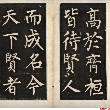 高於齊桓
皆待賢人
而成名今
天下賢者